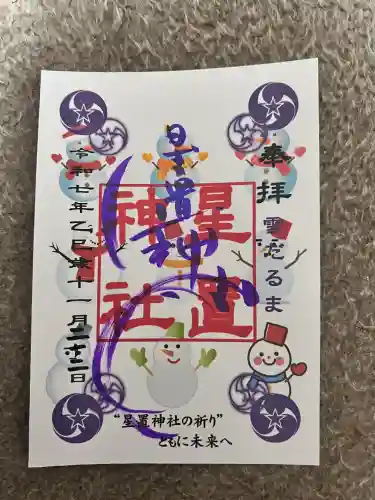 奉拝
雪だるま
星置神社
星置神社
令和七年乙巳歳十一月二十二日
“星置神社の祈り”
ともに未来へ